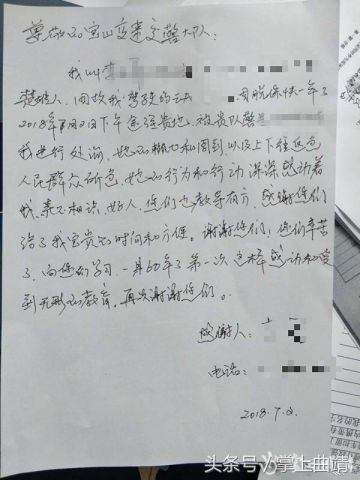 尊敬的宝山交通交警大队:
我叫
楚雄人,因故我驾驶的云 因脱保快一年了
2018年7月2日下午途经贵地,被贵队警
我进行处罚,她的 和周到,以及上下往返
人民群众所急,她的行为和行动深深感动着
我,素不相识,好人,你们也教导有方,感谢你们
给了我宝贵的时间和方便。谢谢你们!你们辛苦
了,向你们学习,一身50年了第一次这样感动和受
到无形的教育。再次谢谢你们。
感谢人:
电话:
2018.7.2.
头条号/掌上曲靖